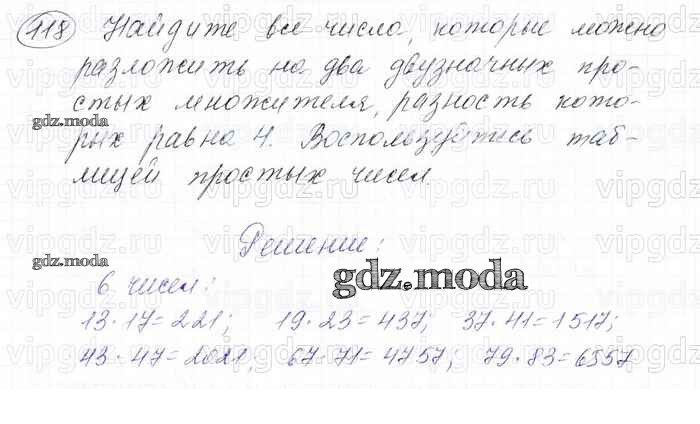 118 Найдите все числа, которые можно
разложить на два двузначных про-
стых множителя, разность кото-
gdz.moda
рых равна 4. Воспользуйтесь таб-
лицей простых чисел.
Решение:
gdz.moda
gdz.moda
6 чисел:
13·17=221; 19·23=437; 37·41=1517;
43·47=2021; 67·71=4757; 79·83=6557